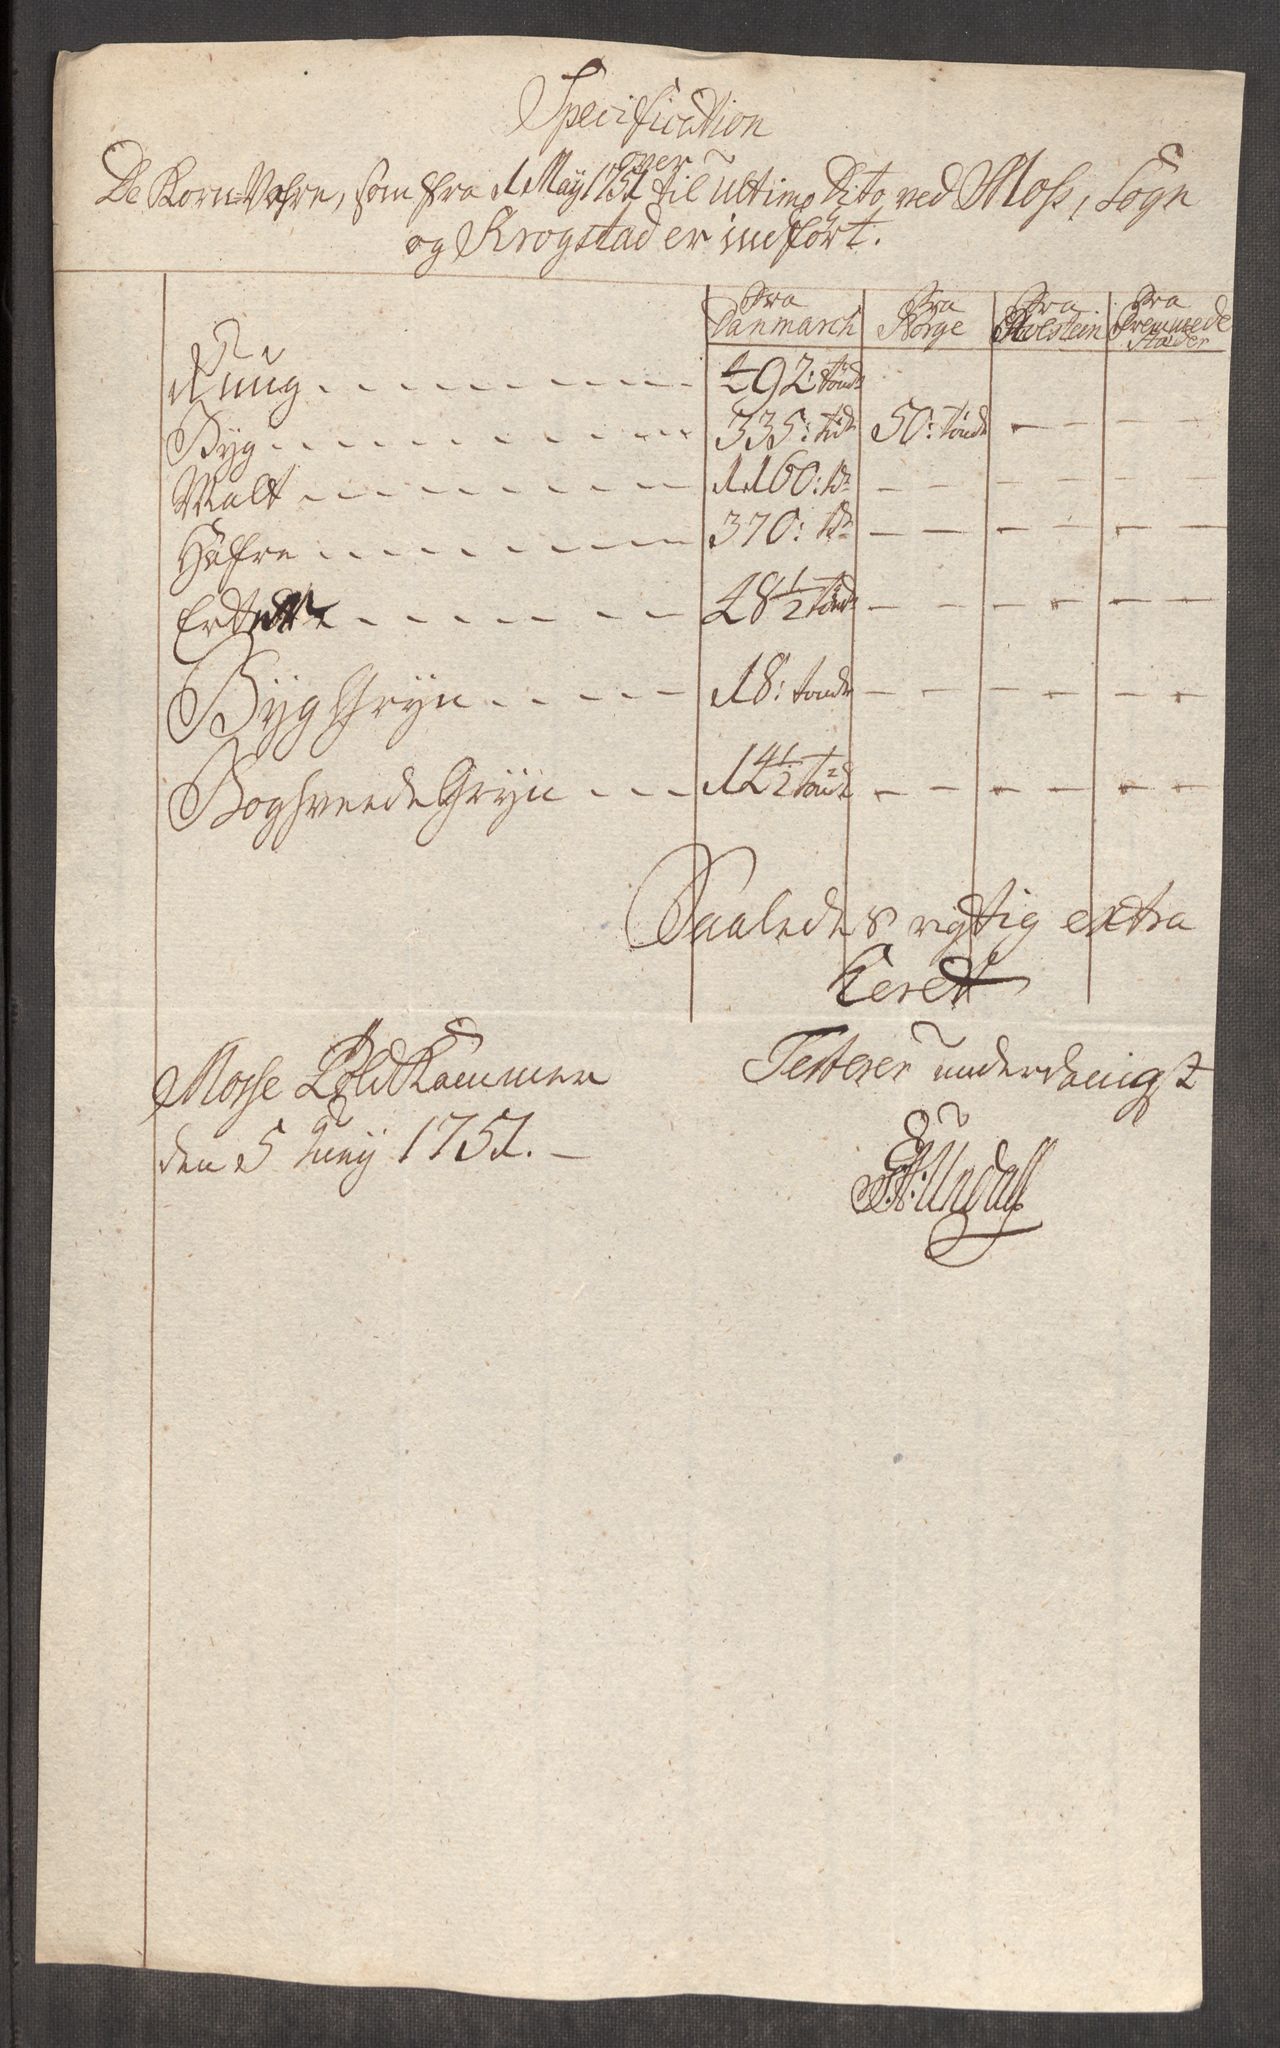 Specification
over
De Korn-Vahre, som fra 1 May 1751 til ultimo dito, ved Moss, Sogn
og Krogstad er indført.
Fra Danmarch Fra Norge Fra Holstein Fra Fremmede Stæder
Rug - - - 492: tönd
Byg - - - 335: td 50: tönde - - -
Malt - - - 1160: td - - - - - -
Hafre - - - 370: td - - - - - -
Erter - - - 48 1/2 tönd - - - - - -
Byg Gryn - - - 18: tønde - - - - - -
Boghvede Gryn - - - 14 1/2 tönd - - - - - -
Saaledes rigtig extra
heret
Mosse Told Kammer Testerer underdanigst
den 5 Juny 1751. -